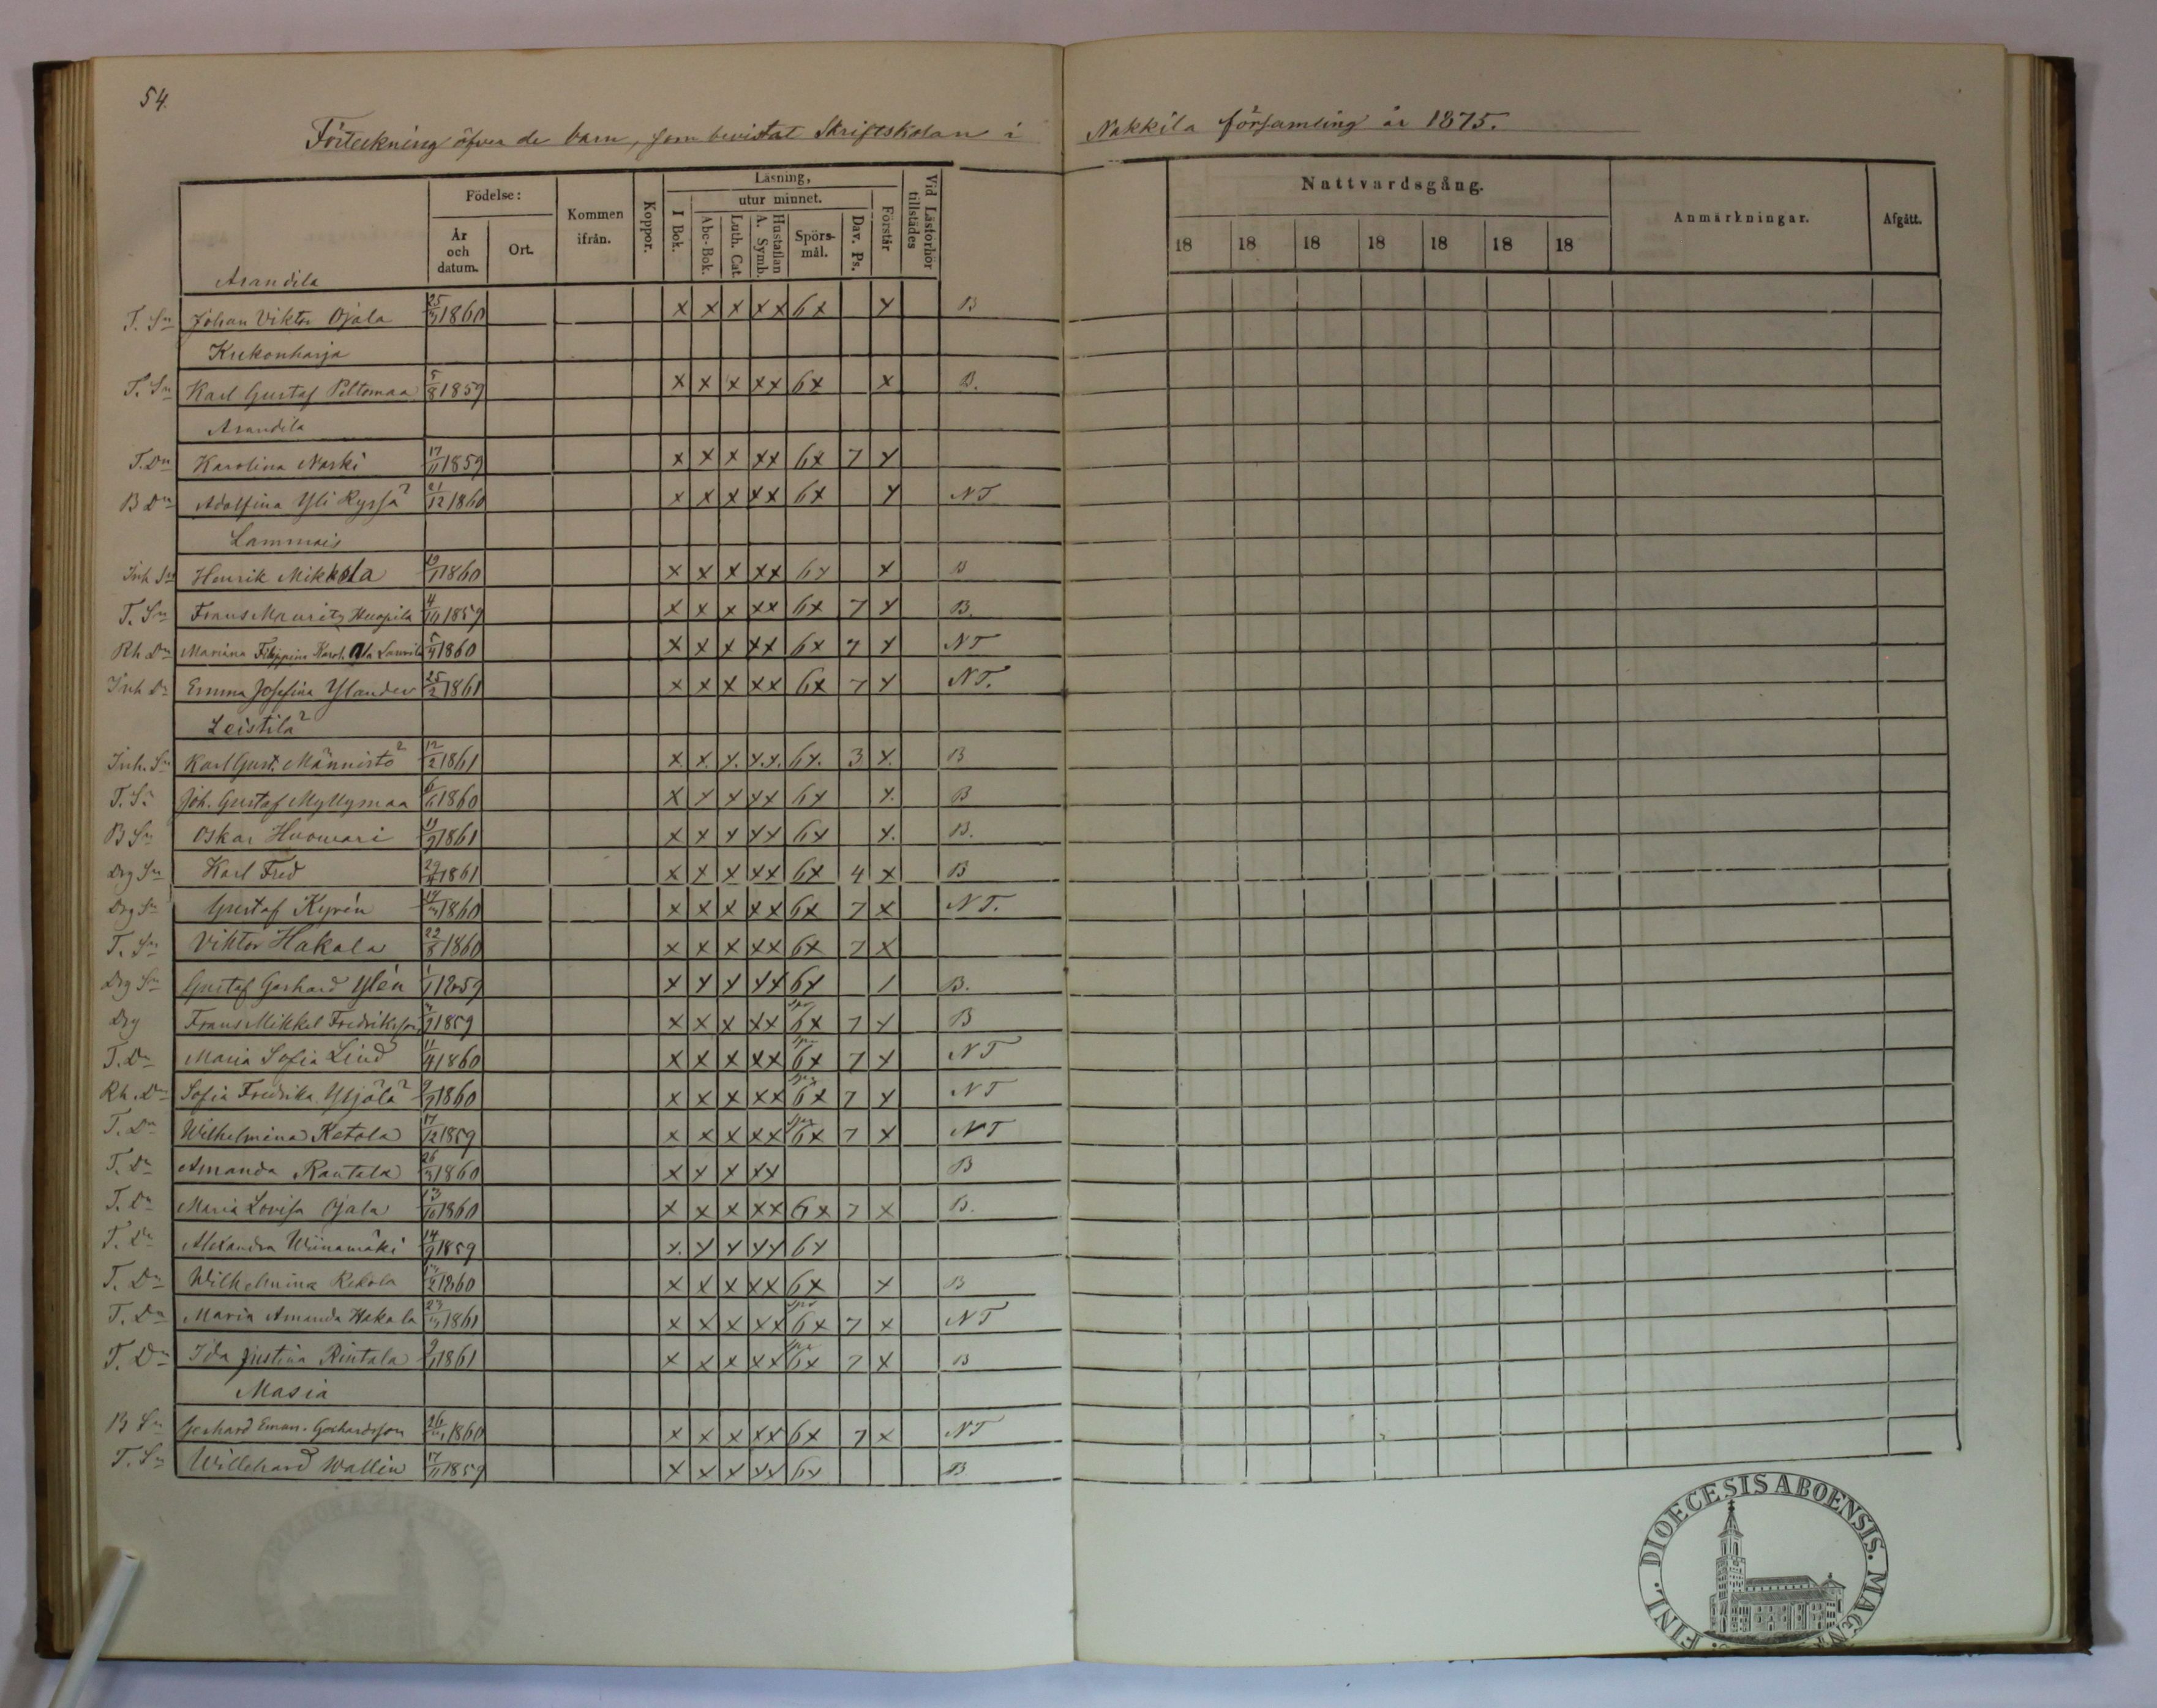 54.
Förteckning öfver de barn, som bevistat Skriftskolan i Nakkila församling år 1875.
Födelse: Kommen ifrån. Koppor. Läsning, Vid Läsförhör tillstädes Nattvardsgång. Anmärkningar. Afgått.
År och datum. Ort. I Bok. utur minnet. Förstår
Abc-Bok. Luth. Cat. Hustaflan A. Symb. Spörsmål. Dav. Ps. 18 18 18 18 18 18 18
Arandila
T. Sn Johan Viktor Ojala 25/3 1860 x x x x x 6x x B
Krekonharja
T. Sn Karl Gustaf Peltomaa 5/8 1859 x x x x x 6x x B.
Arandila
T. Dn Karolina Naski 17/11 1859 x x x x x 6x 7 x
B Dn Adolfina Yli Ryssä 21/12 1860 x x x x x 6x x NT
Lammais
Inh Sn Henrik Mikkola 1860 x x x x x 6x x B
T. Sn Frans Mauritz Huopila 4/10 1859 x x x x x 6x 7 x B.
Rh Dn Mariana Filippina Karol. Ala Laurila 1860 x x x x x 6x 7 x NT
Inh Dn Emma Josefina Ylander 25/2 1861 x x x x x 6x 7 x NT.
Leistilä
Inh. Sn Karl Gust. Männistö 12/2 1861 x. x. x. x. x. 6x. 3 x. B
T. Sn Joh. Gustaf Myllymaa 1860 x x x x x 6x x. B
B Sn Oskar Huomari 1861 x x x x x 6x x. B.
Drg Sn Karl Fred 1861 x x x x x 6x 4 x B
Drg Sn Gustaf Kyrén 1860 x x x x x 6x 7 x NT.
T. Sn Viktor Hakala 22/8 1860 x x x x x 6x 7 x
Drg Sn Gustaf Gerhard Ylén 1/1 1859 x x x x x 6x / B.
Drg Frans Mikkel Fredriksson 1859 x x x x x 6x 7 x B
T. Dn Maria Sofia Lind 11/4 1860 x x x x x 6x 7 x NT
Rh. Dn Sofia Fredrika Ylijölä 1860 x x x x x 6x 7 x NT
T. Dn Wilhelmina Ketola 17/12 1859 x x x x x 6x 7 x NT
T. Dn Amanda Rantala 26/3 1860 x x x x x B
T. Dn Maria Lovisa Ojala 13/10 1860 x x x x x 6x 7 x B.
T. Dn Alexandra Wiinamäki 14/9 1859 x. x x x x 6x
T. Dn Wilhelmina Kekola 1860 x x x x x 6x x B
T. Dn Maria Amanda Hakala 1861 x x x x x 6x 7 x NT
T. Dn Ida Justina Rintala 1861 x x x x x 6x 7 x B
Masia
B Sn Gerhard Eman. Gerhardsson 1860 x x x x x 6x 7 x NT
T. Sn Willehard Wallin 17/11 1859 x x x x x 6x B
FINL. DIOECESIS ABOENSIS. MAGNI